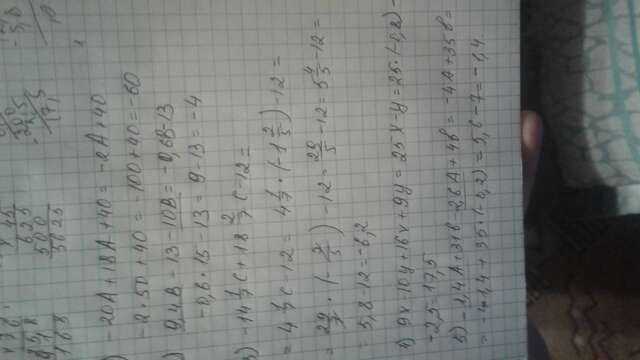 × 45
625
500
5625
168
) -20A+18A+40=-2A+40
-2·50+40=-100+40=-60
) 9,4B-13-10B=-0,6B-13
-0,6·15-13=9-13=-4
) -14 1/7 C+18 2/7 C-12=
=4 1/7 C-12= 4 1/7·(-1 2/5)-12=
=29/7·(-7/5)-12=29/5-12=5 4/5-12=
=5,8-12=-6,2
4) 9x-10y+16x+9y=25x-y=25·(-0,8)-
-2,5=17,5
5) -1,4A+31в-2,6A+4в=-4A+35в=
=-4·1,4+35·(-0,2)=5,6-7=-1,4